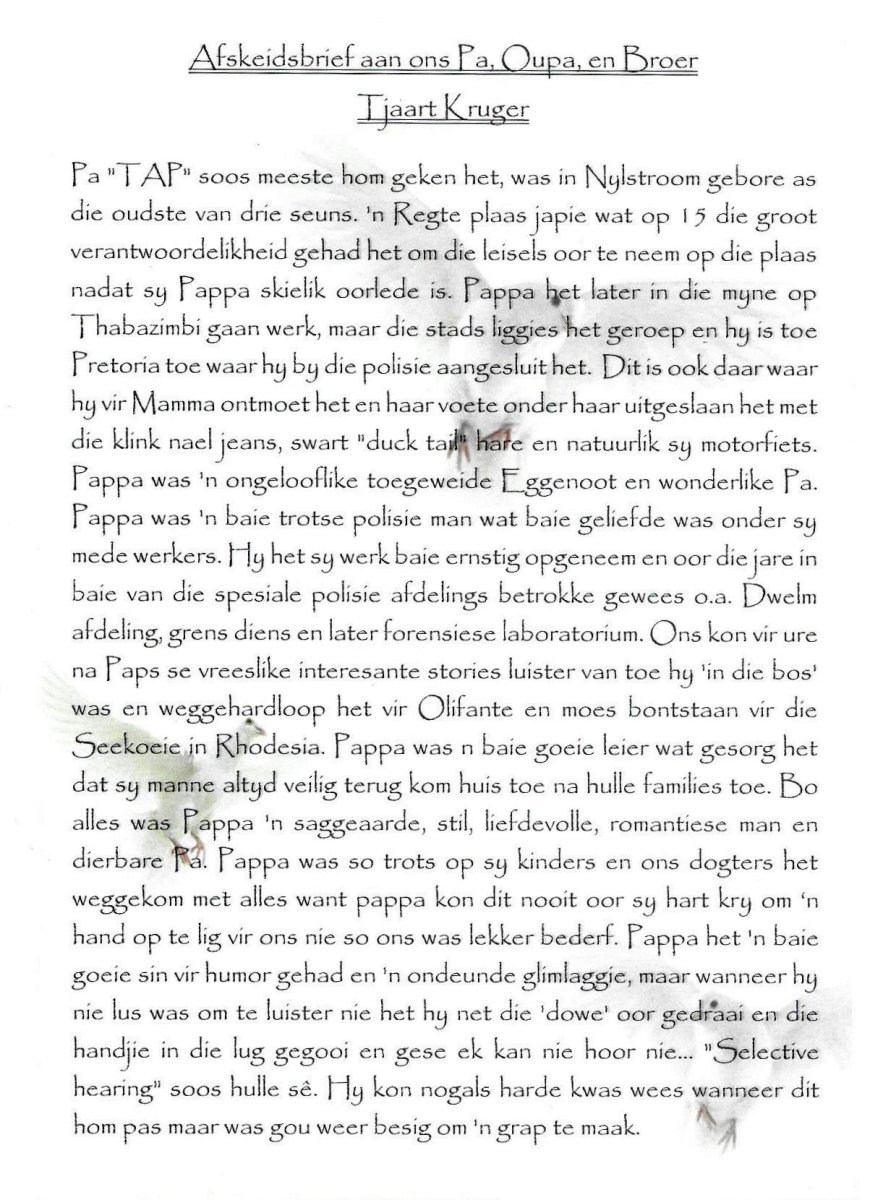 Afskeidsbrief aan ons Pa, Oupa, en Broer
Tjaart Kruger
Pa "TAP" soos meeste hom geken het, was in Nylstroom gebore as
die oudste van drie seuns. 'n Regte plaas japie wat op 15 die groot
verantwoordelikheid gehad het om die leisels oor te neem op die plaas
nadat sy Pappa skielik oorlede is. Pappa het later in die myne op
Thabazimbi gaan werk, maar die stads liggies het geroep en hy is toe
Pretoria toe waar hy by die polisie aangesluit het. Dit is ook daar waar
hy vir Mamma ontmoet het en haar voete onder haar uitgeslaan het met
die klink nael jeans, swart "duck tail" hare en natuurlik sy motorfiets.
Pappa was 'n ongelooflike toegeweide Eggenoot en wonderlike Pa.
Pappa was 'n baie trotse polisie man wat baie geliefde was onder sy
mede werkers. Hy het sy werk baie ernstig opgeneem en oor die jare in
baie van die spesiale polisie afdelings betrokke gewees o.a. Dwelm
afdeling, grens diens en later forensiese laboratorium. Ons kon vir ure
na Paps se vreeslike interesante stories luister van toe hy 'in die bos'
was en weggehardloop het vir Olifante en moes bontstaan vir die
Seekoeie in Rhodesia. Pappa was n baie goeie leier wat gesorg het
dat sy manne altyd veilig terug kom huis toe na hulle families toe. Bo
alles was Pappa 'n saggeaarde, stil, liefdevolle, romantiese man en
dierbare Pa. Pappa was so trots op sy kinders en ons dogters het
weggekom met alles want pappa kon dit nooit oor sy hart kry om ‘n
hand op te lig vir ons nie so ons was lekker bederf. Pappa het 'n baie
goeie sin vir humor gehad en 'n ondeunde glimlaggie, maar wanneer hy
nie lus was om te luister nie het hy net die 'dowe' oor gedraai en die
handjie in die lug gegooi en gese ek kan nie hoor nie... "Selective
hearing" soos hulle sê. Hy kon nogals harde kwas wees wanneer dit
hom pas maar was gou weer besig om 'n grap te maak.